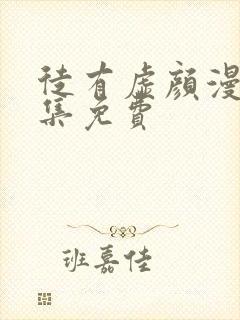 徒有虚颜漫
集免費
班嘉佳